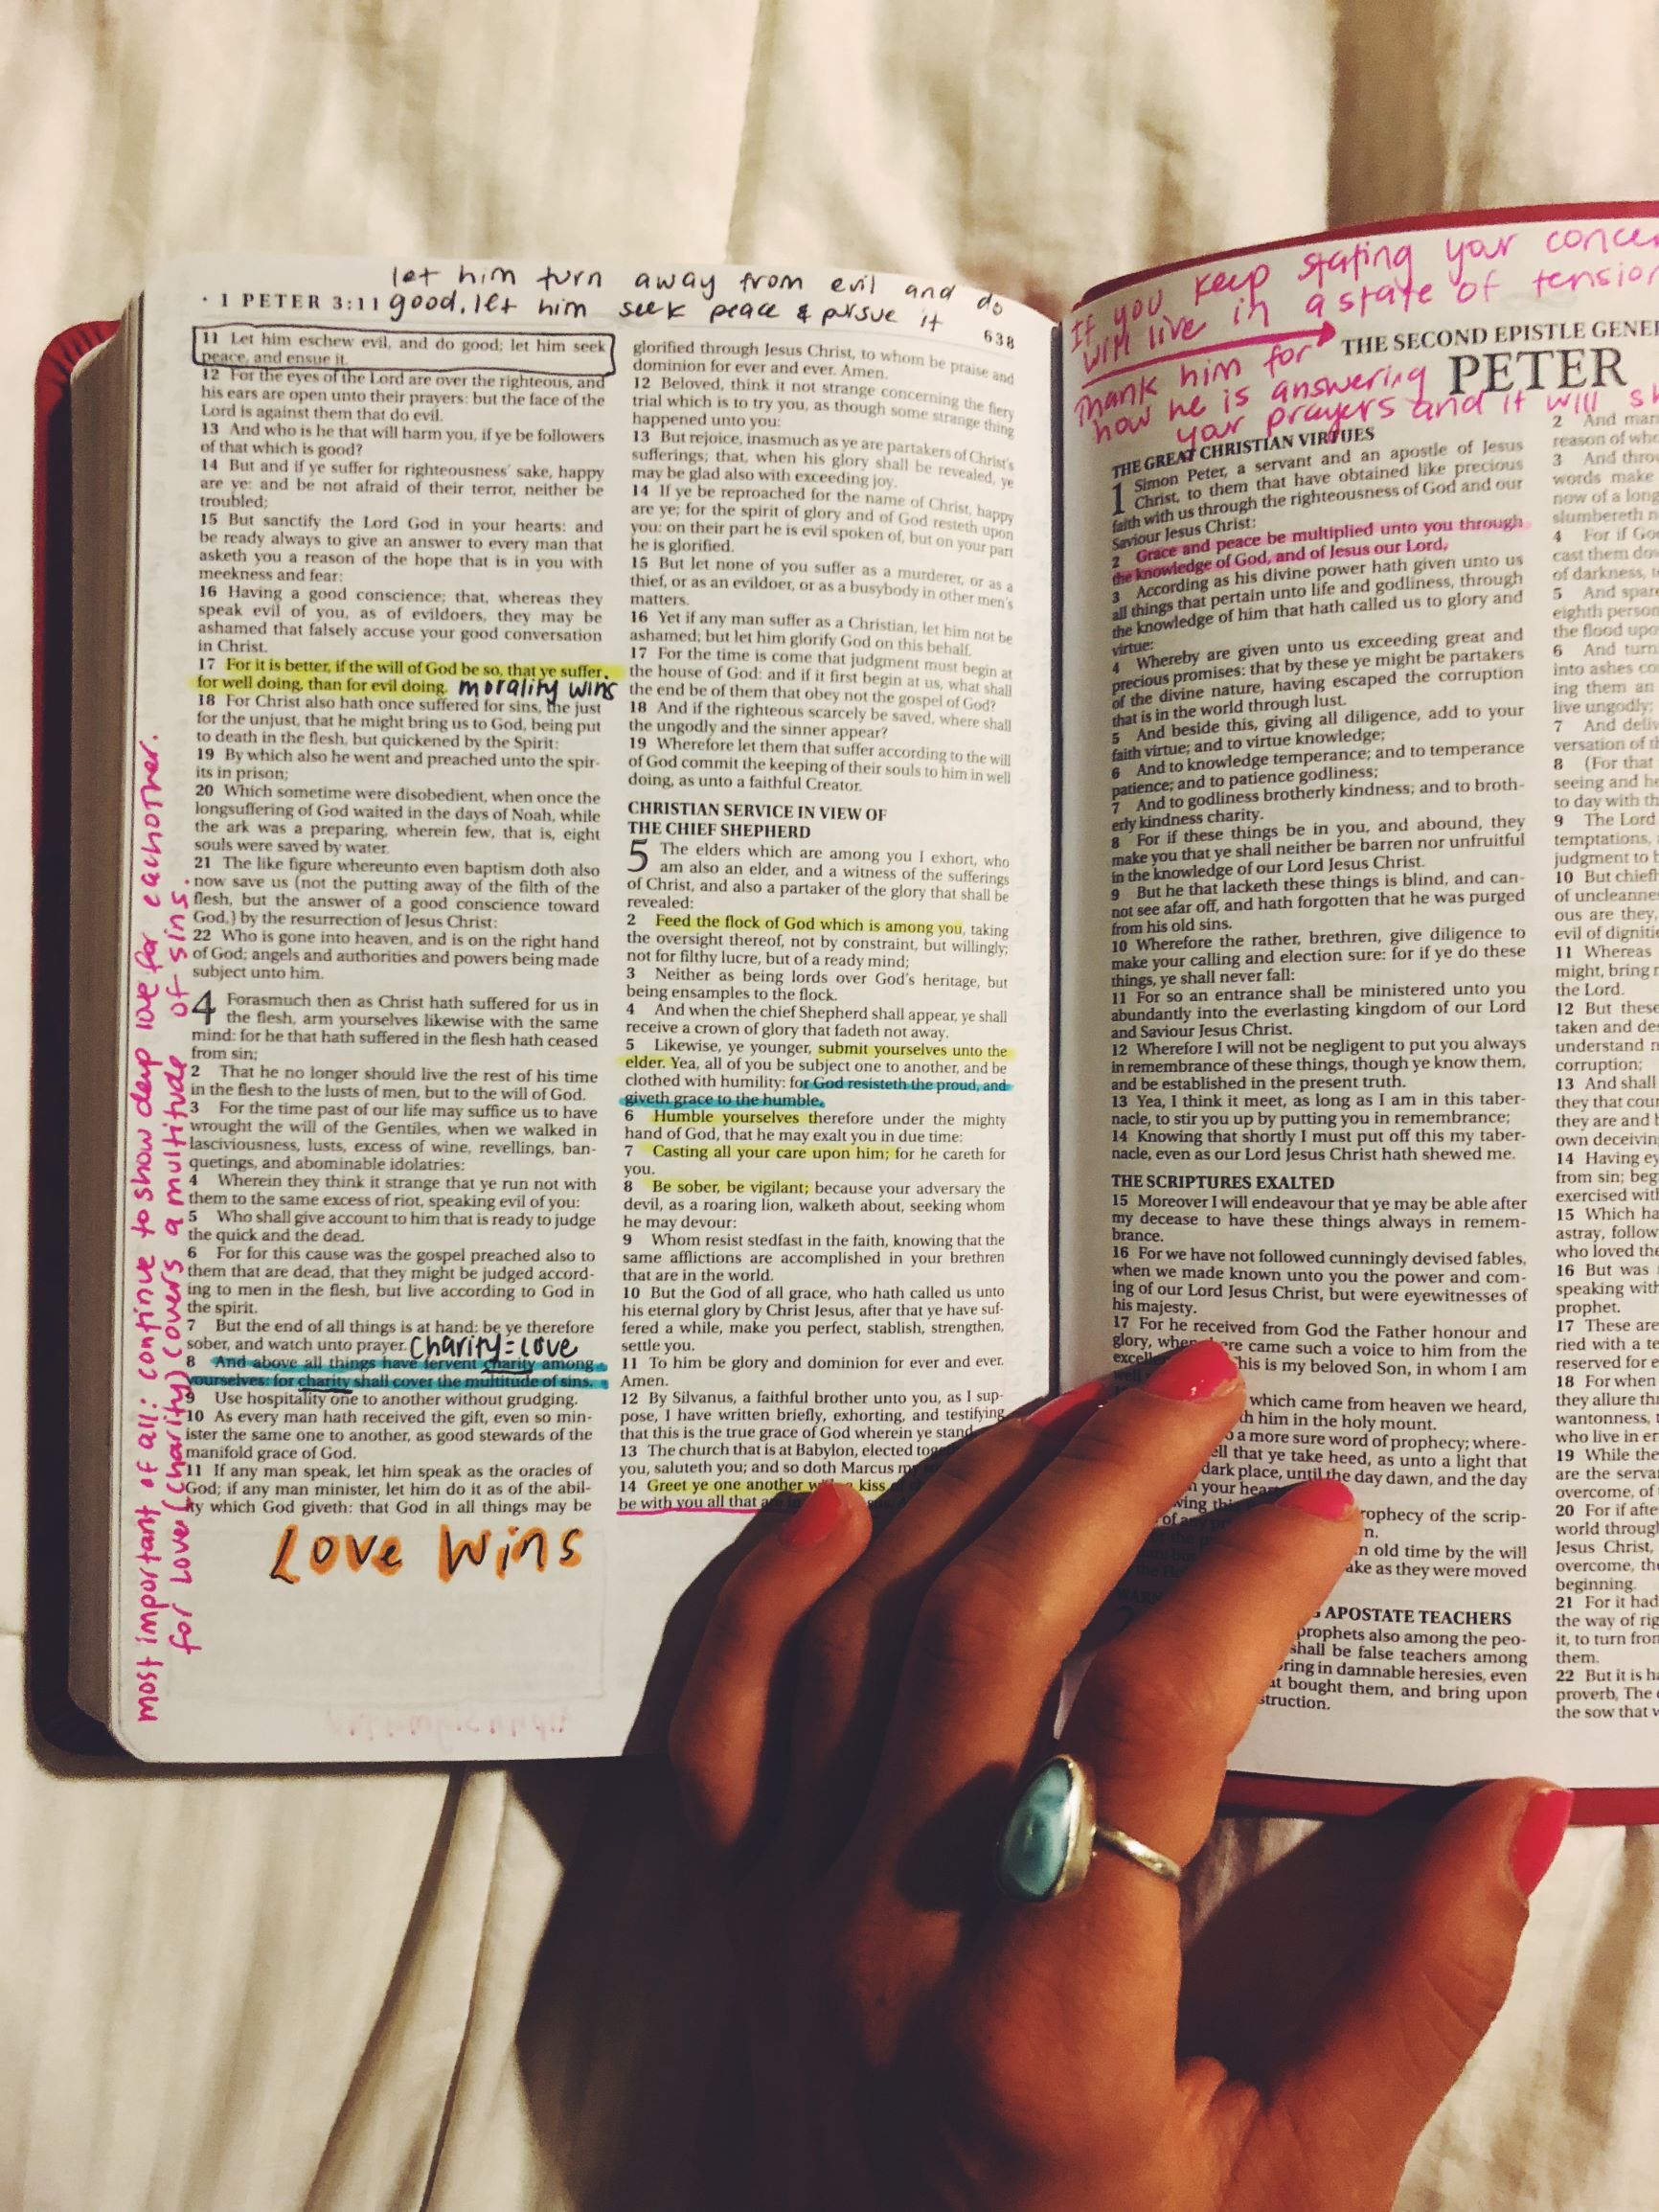 let him turn away from evil and do
· 1 PETER 3:11 good. let him seek peace & pursue it
638
11 Let him eschew evil, and do good; let him seek
peace, and ensue it.
12 For the eyes of the Lord are over the righteous, and
his ears are open unto their prayers: but the face of the
Lord is against them that do evil.
13 And who is he that will harm you, if ye be followers
of that which is good?
14 But and if ye suffer for righteousness' sake, happy
are ye: and be not afraid of their terror, neither be
troubled;
15 But sanctify the Lord God in your hearts: and
be ready always to give an answer to every man that
asketh you a reason of the hope that is in you with
meekness and fear:
16 Having a good conscience; that, whereas they
speak evil of you, as of evildoers, they may be
ashamed that falsely accuse your good conversation
in Christ.
17 For it is better, if the will of God be so, that ye suffer
for well doing, than for evil doing. morality wins
18 For Christ also hath once suffered for sins, the just
for the unjust, that he might bring us to God, being put
to death in the flesh, but quickened by the Spirit:
19 By which also he went and preached unto the spir-
its in prison;
20 Which sometime were disobedient, when once the
longsuffering of God waited in the days of Noah, while
the ark was a preparing, wherein few, that is, eight
souls were saved by water.
21 The like figure whereunto even baptism doth also
now save us (not the putting away of the filth of the
flesh, but the answer of a good conscience toward
God,) by the resurrection of Jesus Christ:
22 Who is gone into heaven, and is on the right hand
of God; angels and authorities and powers being made
subject unto him.
4 Forasmuch then as Christ hath suffered for us in
the flesh, arm yourselves likewise with the same
mind: for he that hath suffered in the flesh hath ceased
from sin;
2 That he no longer should live the rest of his time
in the flesh to the lusts of men, but to the will of God.
3 For the time past of our life may suffice us to have
wrought the will of the Gentiles, when we walked in
lasciviousness, lusts, excess of wine, revellings, ban-
quetings, and abominable idolatries:
4 Wherein they think it strange that ye run not with
them to the same excess of riot, speaking evil of you:
5 Who shall give account to him that is ready to judge
the quick and the dead.
6 For for this cause was the gospel preached also to
them that are dead, that they might be judged accord-
ing to men in the flesh, but live according to God in
the spirit.
7 But the end of all things is at hand: be ye therefore
sober, and watch unto prayer. Charity=love
8 And above all things have fervent charity among
yourselves: for charity shall cover the multitude of sins.
9 Use hospitality one to another without grudging.
10 As every man hath received the gift, even so min-
ister the same one to another, as good stewards of the
manifold grace of God.
11 If any man speak, let him speak as the oracles of
God; if any man minister, let him do it as of the abil-
ity which God giveth: that God in all things may be
Love Wins
most important of all: continue to show deep love for eachother.
for love (charity) covers a multitude of sins.
glorified through Jesus Christ, to whom be praise and
dominion for ever and ever. Amen.
12 Beloved, think it not strange concerning the fiery
trial which is to try you, as though some strange thing
happened unto you:
13 But rejoice, inasmuch as ye are partakers of Christ's
sufferings; that, when his glory shall be revealed, ye
may be glad also with exceeding joy.
14 If ye be reproached for the name of Christ, happy
are ye; for the spirit of glory and of God resteth upon
you: on their part he is evil spoken of, but on your part
he is glorified.
15 But let none of you suffer as a murderer, or as a
thief, or as an evildoer, or as a busybody in other men's
matters.
16 Yet if any man suffer as a Christian, let him not be
ashamed; but let him glorify God on this behalf.
17 For the time is come that judgment must begin at
the house of God: and if it first begin at us, what shall
the end be of them that obey not the gospel of God?
18 And if the righteous scarcely be saved, where shall
the ungodly and the sinner appear?
19 Wherefore let them that suffer according to the will
of God commit the keeping of their souls to him in well
doing, as unto a faithful Creator.
CHRISTIAN SERVICE IN VIEW OF
THE CHIEF SHEPHERD
5 The elders which are among you I exhort, who
am also an elder, and a witness of the sufferings
of Christ, and also a partaker of the glory that shall be
revealed:
2 Feed the flock of God which is among you, taking
the oversight thereof, not by constraint, but willingly;
not for filthy lucre, but of a ready mind;
3 Neither as being lords over God's heritage, but
being ensamples to the flock.
4 And when the chief Shepherd shall appear, ye shall
receive a crown of glory that fadeth not away.
5 Likewise, ye younger, submit yourselves unto the
elder. Yea, all of you be subject one to another, and be
clothed with humility: for God resisteth the proud, and
giveth grace to the humble.
6 Humble yourselves therefore under the mighty
hand of God, that he may exalt you in due time:
7 Casting all your care upon him; for he careth for
you.
8 Be sober, be vigilant; because your adversary the
devil, as a roaring lion, walketh about, seeking whom
he may devour:
9 Whom resist stedfast in the faith, knowing that the
same afflictions are accomplished in your brethren
that are in the world.
10 But the God of all grace, who hath called us unto
his eternal glory by Christ Jesus, after that ye have suf-
fered a while, make you perfect, stablish, strengthen,
settle you.
11 To him be glory and dominion for ever and ever.
Amen.
12 By Silvanus, a faithful brother unto you, as I sup-
pose, I have written briefly, exhorting, and testifying
that this is the true grace of God wherein ye stand
13 The church that is at Babylon, elected
you, saluteth you; and so doth Marcus
14 Greet ye one another kiss
be with you all that
If you keep stating your
will live in a state of
thank him for
how he is answering
your prayers and it will
THE SECOND EPISTLE
PETER
THE GREAT CHRISTIAN VIRTUES
1 Simon Peter, a servant and an apostle of Jesus
Christ, to them that have obtained like precious
faith with us through the righteousness of God and our
Saviour Jesus Christ:
2 Grace and peace be multiplied unto you through
the knowledge of God, and of Jesus our Lord,
3 According as his divine power hath given unto us
all things that pertain unto life and godliness, through
the knowledge of him that hath called us to glory and
virtue:
4 Whereby are given unto us exceeding great and
precious promises: that by these ye might be partakers
of the divine nature, having escaped the corruption
that is in the world through lust.
5 And beside this, giving all diligence, add to your
faith virtue; and to virtue knowledge;
6 And to knowledge temperance; and to temperance
patience; and to patience godliness;
7 And to godliness brotherly kindness; and to broth-
erly kindness charity.
8 For if these things be in you, and abound, they
make you that ye shall neither be barren nor unfruitful
in the knowledge of our Lord Jesus Christ.
9 But he that lacketh these things is blind, and can-
not see afar off, and hath forgotten that he was purged
from his old sins.
10 Wherefore the rather, brethren, give diligence to
make your calling and election sure: for if ye do these
things, ye shall never fall:
11 For so an entrance shall be ministered unto you
abundantly into the everlasting kingdom of our Lord
and Saviour Jesus Christ.
12 Wherefore I will not be negligent to put you always
in remembrance of these things, though ye know them,
and be established in the present truth.
13 Yea, I think it meet, as long as I am in this taber-
nacle, to stir you up by putting you in remembrance;
14 Knowing that shortly I must put off this my taber-
nacle, even as our Lord Jesus Christ hath shewed me.
THE SCRIPTURES EXALTED
15 Moreover I will endeavour that ye may be able after
my decease to have these things always in remem-
brance.
16 For we have not followed cunningly devised fables,
when we made known unto you the power and com-
ing of our Lord Jesus Christ, but were eyewitnesses of
his majesty.
17 For he received from God the Father honour and
glory, when came such a voice to him from the
This is my beloved Son, in whom I am
which came from heaven we heard,
him in the holy mount.
a more sure word of prophecy; where-
that ye take heed, as unto a light that
dark place, until the day dawn, and the day
your
prophecy of the scrip-
old time by the will
as they were moved
APOSTATE TEACHERS
prophets also among the peo-
shall be false teachers among
bring in damnable heresies, even
bought them, and bring upon

2 And
reason of
3 And
words make
now of a long
slumbereth
4 For if
cast them
of darkness,
5 And
eighth person
the flood
6 And
into ashes
ing them an
live ungodly;
7 And
versation of
8 (For that
seeing and
to day with
9 The Lord
temptations,
judgment to
10 But
of
ous are they,
evil of
11 Whereas
might, bring
the Lord.
12 But these
taken and
understand
corruption;
13 And shall
they that
they are and
own
14 Having
from sin;
exercised
15 Which
astray,
who loved the
16 But was
speaking
prophet.
17 These are
ried with a
reserved for
18 For when
they allure
wantonness,
who live in
19 While
are the
overcome, of
20 For if
world
Jesus Christ,
overcome,
beginning.
21 For it had
the way of
it, to turn from
them.
22 But it is
proverb, The
the sow that